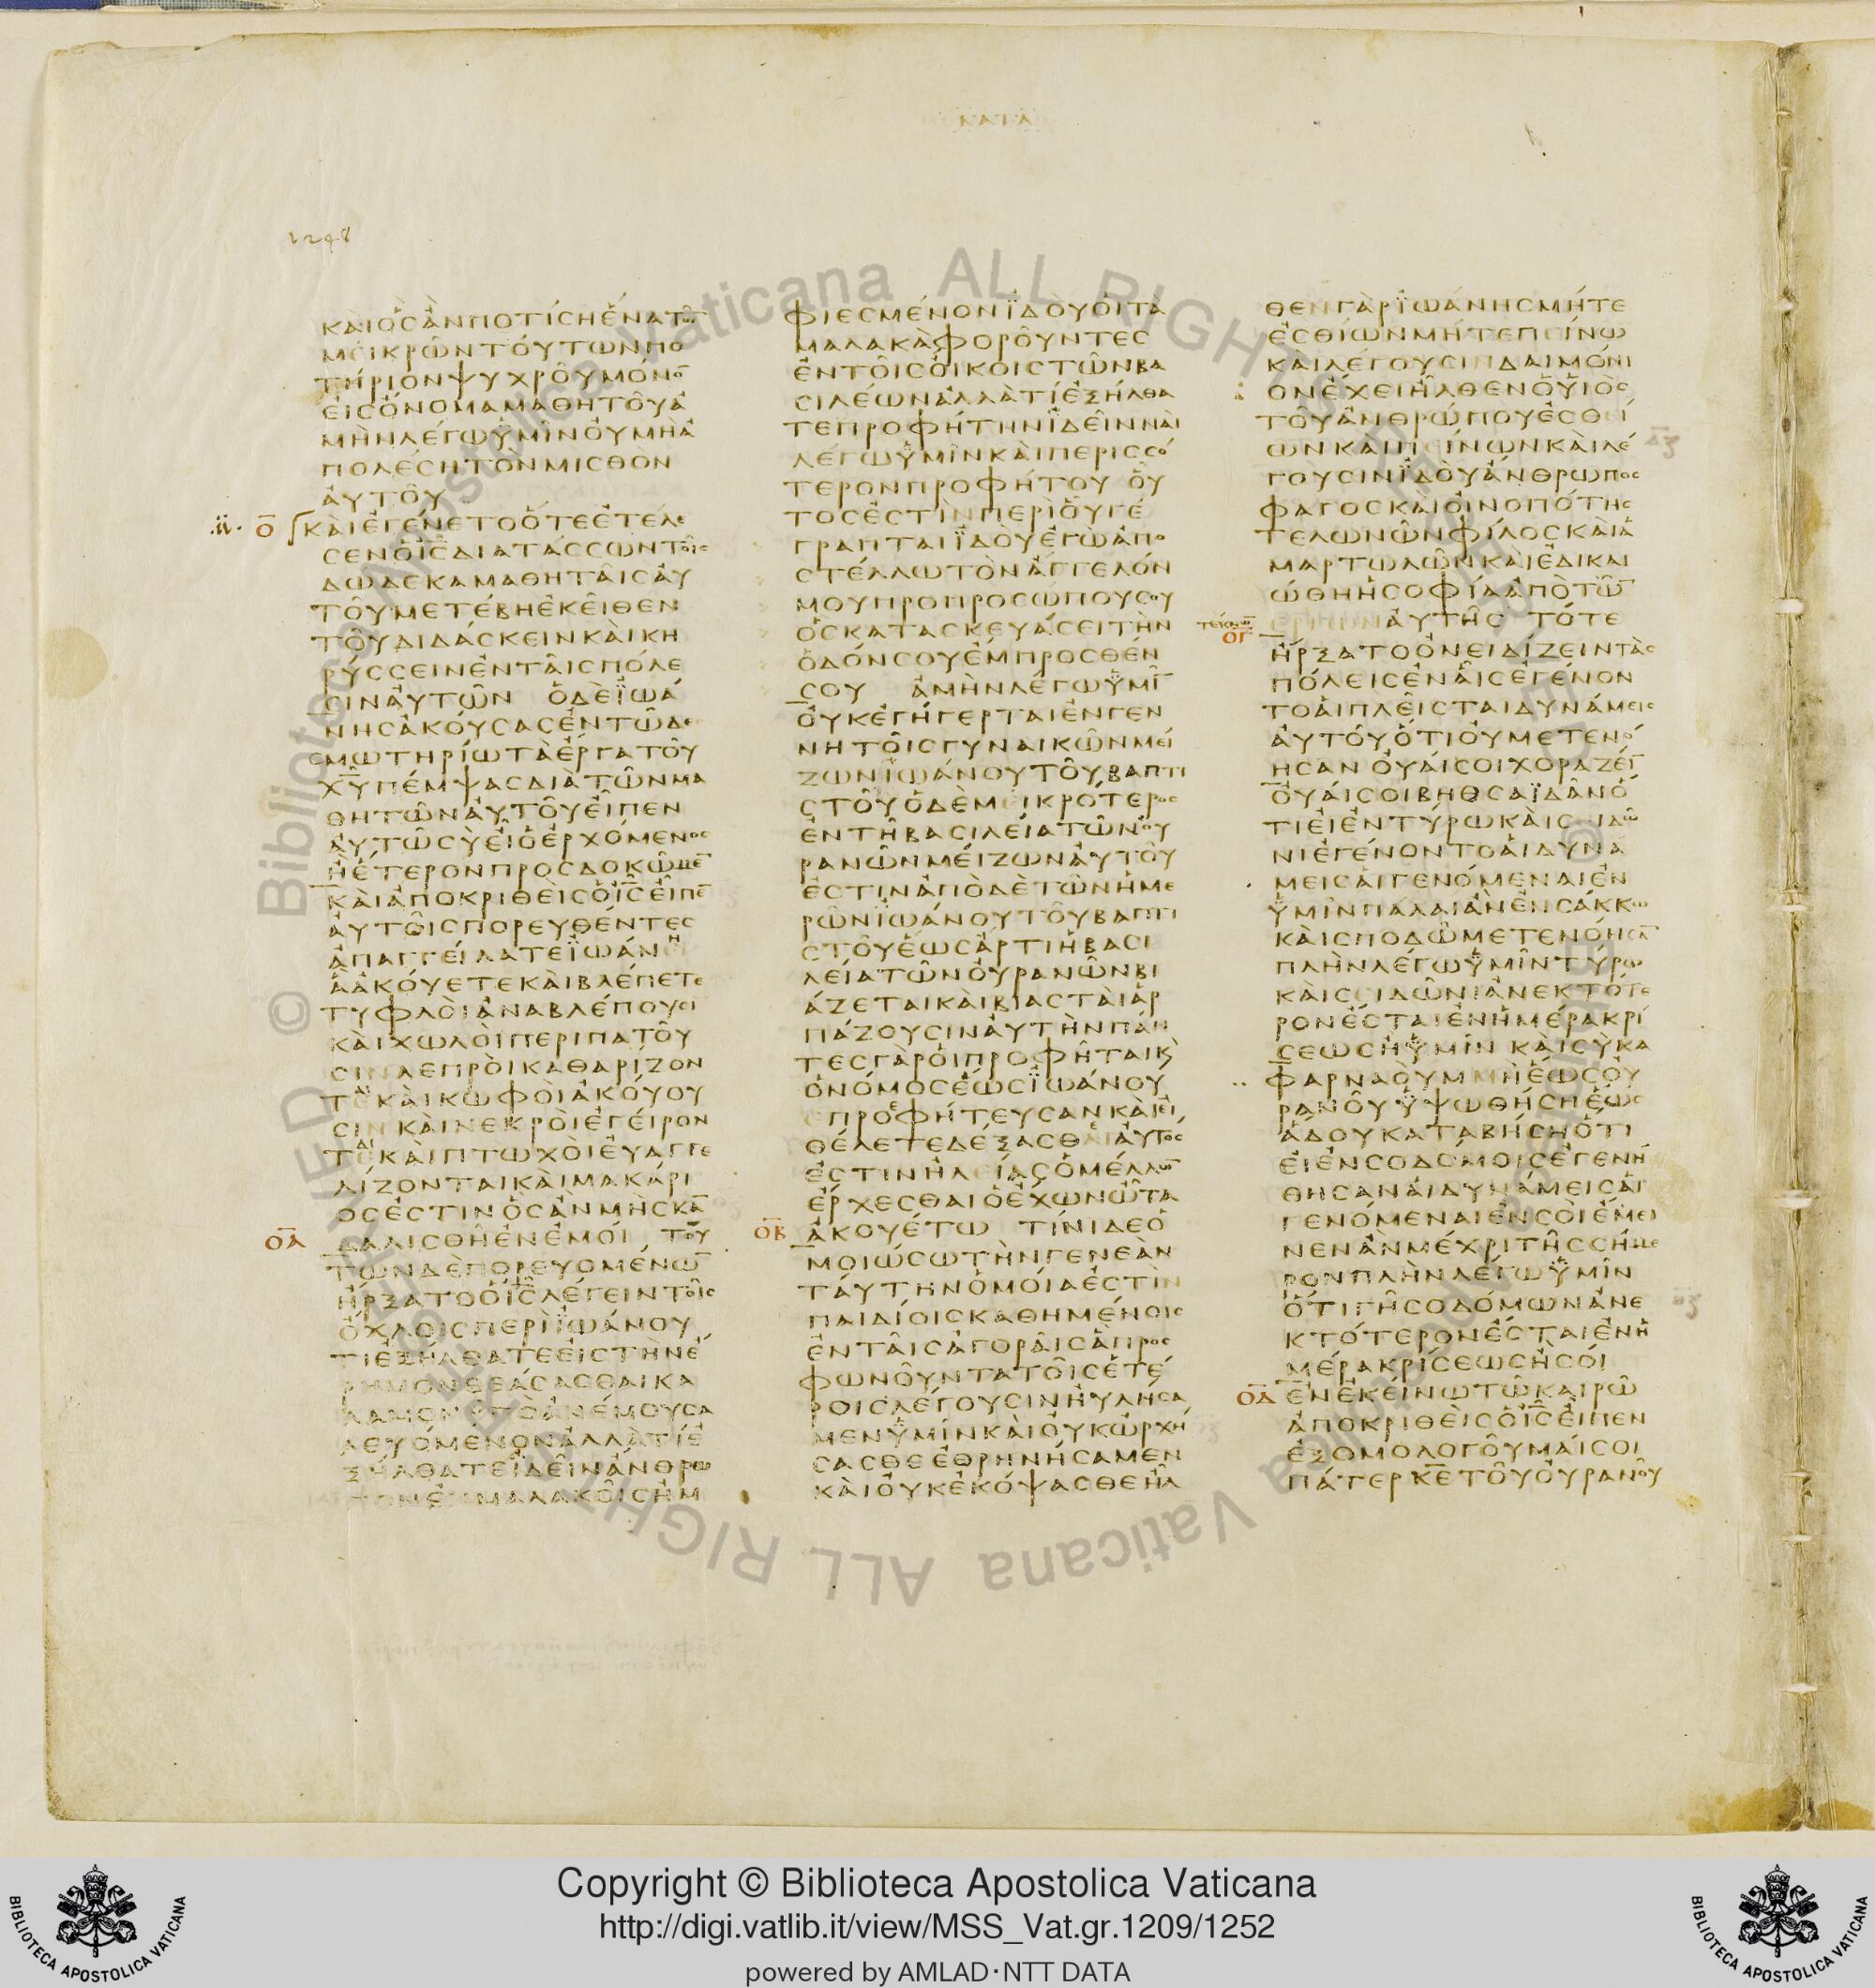 ΚΑΤΑ
1248
ΚΑΙΟΣΑΝΠΟΤΙϹΗΕΝΑΤΩ̅
ΜΕΙΚΡΩΝΤΟΥΤΩΝΠΟ
ΤΗΡΙΟΝΨΥΧΡΟΥΜΟΝΟ̅
ΕΙϹΟΝΟΜΑΜΑΘΗΤΟΥΑ
ΜΗΝΛΕΓΩΫΜΙΝΟΥΜΗΑ
ΠΟΛΕϹΗΤΟΝΜΙϹΘΟΝ
ΑΥΤΟΥ
Ο̅ ΚΑΙΕΓΕΝΕΤΟΟΤΕΕΤΕΛΕ
ϹΕΝΟΙ̅Ϲ̅ΔΙΑΤΑϹϹΩΝΤΟΙϹ
ΔΩΔΕΚΑΜΑΘΗΤΑΙϹΑΥ
ΤΟΥΜΕΤΕΒΗΕΚΕΙΘΕΝ
ΤΟΥΔΙΔΑϹΚΕΙΝΚΑΙΚΗ
ΡΥϹϹΕΙΝΕΝΤΑΙϹΠΟΛΕ
ϹΙΝΑΥΤΩΝ ΟΔΕΪΩΑ
ΝΗϹΑΚΟΥϹΑϹΕΝΤΩΔΕ
ϹΜΩΤΗΡΙΩΤΑΕΡΓΑΤΟΥ
Χ̅Υ̅ΠΕΜΨΑϹΔΙΑΤΩΝΜΑ
ΘΗΤΩΝΑΥΤΟΥΕΙΠΕΝ
ΑΥΤΩϹΥΕΙΟΕΡΧΟΜΕΝΟϹ
ΗΕΤΕΡΟΝΠΡΟϹΔΟΚΩΜΕ̅
ΚΑΙΑΠΟΚΡΙΘΕΙϹΟΙ̅Ϲ̅ΕΙΠΕ̅
ΑΥΤΟΙϹΠΟΡΕΥΘΕΝΤΕϹ
ΑΠΑΓΓΕΙΛΑΤΕΪΩΑΝΗ
ΑΑΚΟΥΕΤΕΚΑΙΒΛΕΠΕΤΕ
ΤΥΦΛΟΙΑΝΑΒΛΕΠΟΥϹΙ
ΚΑΙΧΩΛΟΙΠΕΡΙΠΑΤΟΥ
ϹΙΝΛΕΠΡΟΙΚΑΘΑΡΙΖΟΝ
ΤΕΚΑΙΚΩΦΟΙΑΚΟΥΟΥ
ϹΙΝΚΑΙΝΕΚΡΟΙΕΓΕΙΡΟΝ
ΤΕΚΑΙΠΤΩΧΟΙΕΥΑΓΓΕ
ΛΙΖΟΝΤΑΙΚΑΙΜΑΚΑΡΙ
ΟϹΕϹΤΙΝΟϹΑΝΜΗϹΚΑ̅
ΟΑ̅ ΔΑΛΙϹΘΗΕΝΕΜΟΙ ΤΟΥ
ΤΩΝΔΕΠΟΡΕΥΟΜΕΝΩ̅
ΗΡΞΑΤΟΟΙ̅Ϲ̅ΛΕΓΕΙΝΤΟΙϹ
ΟΧΛΟΙϹΠΕΡΙΪΩΑΝΟΥ
ΤΙΕΞΗΛΘΑΤΕΕΙϹΤΗΝΕ
ΡΗΜΟΝΘΕΑϹΑϹΘΑΙΚΑ
ΛΑΜΟΝΥΠΟΑΝΕΜΟΥϹΑ
ΛΕΥΟΜΕΝΟΝΑΛΛΑΤΙΕ
ΞΗΛΘΑΤΕΪΔΕΙΝΑΝΘΡΩ
ΠΟΝΕΝΜΑΛΑΚΟΙϹΗΜ
ΦΙΕϹΜΕΝΟΝΪΔΟΥΟΙΤΑ
ΜΑΛΑΚΑΦΟΡΟΥΝΤΕϹ
ΕΝΤΟΙϹΟΙΚΟΙϹΤΩΝΒΑ
ϹΙΛΕΩΝΑΛΛΑΤΙΕΞΗΛΘΑ
ΤΕΠΡΟΦΗΤΗΝΪΔΕΙΝΝΑΙ
ΛΕΓΩΫΜΙΝΚΑΙΠΕΡΙϹϹΟ
ΤΕΡΟΝΠΡΟΦΗΤΟΥ ΟΥ
ΤΟϹΕϹΤΙΝΠΕΡΙΟΥΓΕ
ΓΡΑΠΤΑΙΪΔΟΥΕΓΩΑΠΟ
ϹΤΕΛΛΩΤΟΝΑΓΓΕΛΟΝ
ΜΟΥΠΡΟΠΡΟϹΩΠΟΥϹΟΥ
ΟϹΚΑΤΑϹΚΕΥΑϹΕΙΤΗΝ
ΟΔΟΝϹΟΥΕΜΠΡΟϹΘΕΝ
ϹΟΥ ΑΜΗΝΛΕΓΩΫΜΙ̅
ΟΥΚΕΓΗΓΕΡΤΑΙΕΝΓΕΝ
ΝΗΤΟΙϹΓΥΝΑΙΚΩΝΜΕΙ
ΖΩΝΪΩΑΝΟΥΤΟΥΒΑΠΤΙ
ϹΤΟΥΟΔΕΜΕΙΚΡΟΤΕΡΟϹ
ΕΝΤΗΒΑϹΙΛΕΙΑΤΩΝΟΥ
ΡΑΝΩΝΜΕΙΖΩΝΑΥΤΟΥ
ΕϹΤΙΝΑΠΟΔΕΤΩΝΗΜΕ
ΡΩΝΪΩΑΝΟΥΤΟΥΒΑΠΤΙ
ϹΤΟΥΕΩϹΑΡΤΙΗΒΑϹΙ
ΛΕΙΑΤΩΝΟΥΡΑΝΩΝΒΙ
ΑΖΕΤΑΙΚΑΙΒΙΑϹΤΑΙΑΡ
ΠΑΖΟΥϹΙΝΑΥΤΗΝΠΑΝ
ΤΕϹΓΑΡΟΙΠΡΟΦΗΤΑΙΚ
ΟΝΟΜΟϹΕΩϹΪΩΑΝΟΥ
ΕΠΡΟΦΗΤΕΥϹΑΝΚΑΙΕΙ
ΘΕΛΕΤΕΔΕΞΑϹΘΑΙΑΥΤΟϹ
ΕϹΤΙΝΗΛΕΙΑϹΟΜΕΛΛΩ̅
ΕΡΧΕϹΘΑΙΟΕΧΩΝΩΤΑ
ΟΒ̅ ΑΚΟΥΕΤΩ ΤΙΝΙΔΕΟ
ΜΟΙΩϹΩΤΗΝΓΕΝΕΑΝ
ΤΑΥΤΗΝΟΜΟΙΑΕϹΤΙΝ
ΠΑΙΔΙΟΙϹΚΑΘΗΜΕΝΟΙϹ
ΕΝΤΑΙϹΑΓΟΡΑΙϹΑΠΡΟϹ
ΦΩΝΟΥΝΤΑΤΟΙϹΕΤΕ
ΡΟΙϹΛΕΓΟΥϹΙΝΗΥΛΗϹΑ
ΜΕΝΫΜΙΝΚΑΙΟΥΚΩΡΧΗ
ϹΑϹΘΕΕΘΡΗΝΗϹΑΜΕΝ
ΚΑΙΟΥΚΕΚΟΨΑϹΘΕΗΛ
ΘΕΝΓΑΡΪΩΑΝΗϹΜΗΤΕ
ΕϹΘΙΩΝΜΗΤΕΠΕΙΝΩ
ΚΑΙΛΕΓΟΥϹΙΝΔΑΙΜΟΝΙ
ΟΝΕΧΕΙΗΛΘΕΝΟΥΙΟϹ
ΤΟΥΑΝΘΡΩΠΟΥΕϹΘΕΙ
ΩΝΚΑΙΠΕΙΝΩΝΚΑΙΛΕ
ΓΟΥϹΙΝΪΔΟΥΑΝΘΡΩΠΟϹ
ΦΑΓΟϹΚΑΙΟΙΝΟΠΟΤΗϹ
ΤΕΛΩΝΩΝΦΙΛΟϹΚΑΙΑ
ΜΑΡΤΩΛΩΝΚΑΙΕΔΙΚΑΙ
ΩΘΗΗϹΟΦΙΑΑΠΟΤΩ̅
ΤΕΚΝΩ̅
ΕΡΓΩΝΑΥΤΗϹ ΤΟΤΕ
ΟΓ̅ ΗΡΞΑΤΟΟΝΕΙΔΙΖΕΙΝΤΑϹ
ΠΟΛΕΙϹΕΝΑΙϹΕΓΕΝΟΝ
ΤΟΑΙΠΛΕΙϹΤΑΙΔΥΝΑΜΕΙϹ
ΑΥΤΟΥΟΤΙΟΥΜΕΤΕΝΟ
ΗϹΑΝ ΟΥΑΙϹΟΙΧΟΡΑΖΕΙ̅
ΟΥΑΙϹΟΙΒΗΘϹΑΪΔΑΝΟ
ΤΙΕΙΕΝΤΥΡΩΚΑΙϹΕΙΔΩ
ΝΙΕΓΕΝΟΝΤΟΑΙΔΥΝΑ
ΜΕΙϹΑΙΓΕΝΟΜΕΝΑΙΕΝ
ΫΜΙΝΠΑΛΑΙΑΝΕΝϹΑΚΚΩ
ΚΑΙϹΠΟΔΩΜΕΤΕΝΟΗϹΑ̅
ΠΛΗΝΛΕΓΩΫΜΙΝΤΥΡΩ
ΚΑΙϹΕΙΔΩΝΙΑΝΕΚΤΟΤΕ
ΡΟΝΕϹΤΑΙΕΝΗΜΕΡΑΚΡΙ
ϹΕΩϹΗΫΜΙΝ ΚΑΙϹΥΚΑ
ΦΑΡΝΑΟΥΜΜΗΕΩϹΟΥ
ΡΑΝΟΥΫΨΩΘΗϹΗΕΩϹ
ΑΔΟΥΚΑΤΑΒΗϹΗΟΤΙ
ΕΙΕΝϹΟΔΟΜΟΙϹΕΓΕΝΗ
ΘΗϹΑΝΑΙΔΥΝΑΜΕΙϹΑΙ
ΓΕΝΟΜΕΝΑΙΕΝϹΟΙΕΜΕΙ
ΝΕΝΑΝΜΕΧΡΙΤΗϹϹΗΜΕ
ΡΟΝΠΛΗΝΛΕΓΩΫΜΙΝ
ΟΤΙΓΗϹΟΔΟΜΩΝΑΝΕ
ΚΤΟΤΕΡΟΝΕϹΤΑΙΕΝΗ
ΜΕΡΑΚΡΙϹΕΩϹΗϹΟΙ
ΟΔ̅ ΕΝΕΚΕΙΝΩΤΩΚΑΙΡΩ
ΑΠΟΚΡΙΘΕΙϹΟΙ̅Ϲ̅ΕΙΠΕΝ
ΕΞΟΜΟΛΟΓΟΥΜΑΙϹΟΙ
ΠΑΤΕΡΚ̅Ε̅ΤΟΥΟΥΡΑΝΟΥ
© Biblioteca Apostolica Vaticana ALL RIGHTS RESERVED
Copyright © Biblioteca Apostolica Vaticana
http://digi.vatlib.it/view/MSS_Vat.gr.1209/1252
powered by AMLAD·NTT DATA
BIBLIOTECA APOSTOLICA VATICANA
BIBLIOTECA APOSTOLICA VATICANA